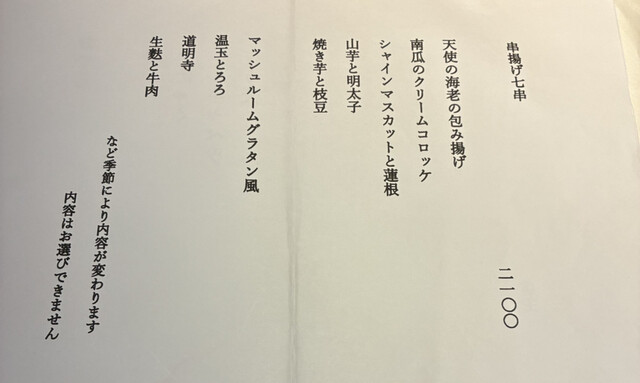 串揚げ七串 二一〇〇
天使の海老の包み揚げ
南瓜のクリームコロッケ
シャインマスカットと蓮根
山芋と明太子
焼き芋と枝豆
マッシュルームグラタン風
温玉とろろ
道明寺
生麩と牛肉
など季節により内容が変わります
内容はお選びできません